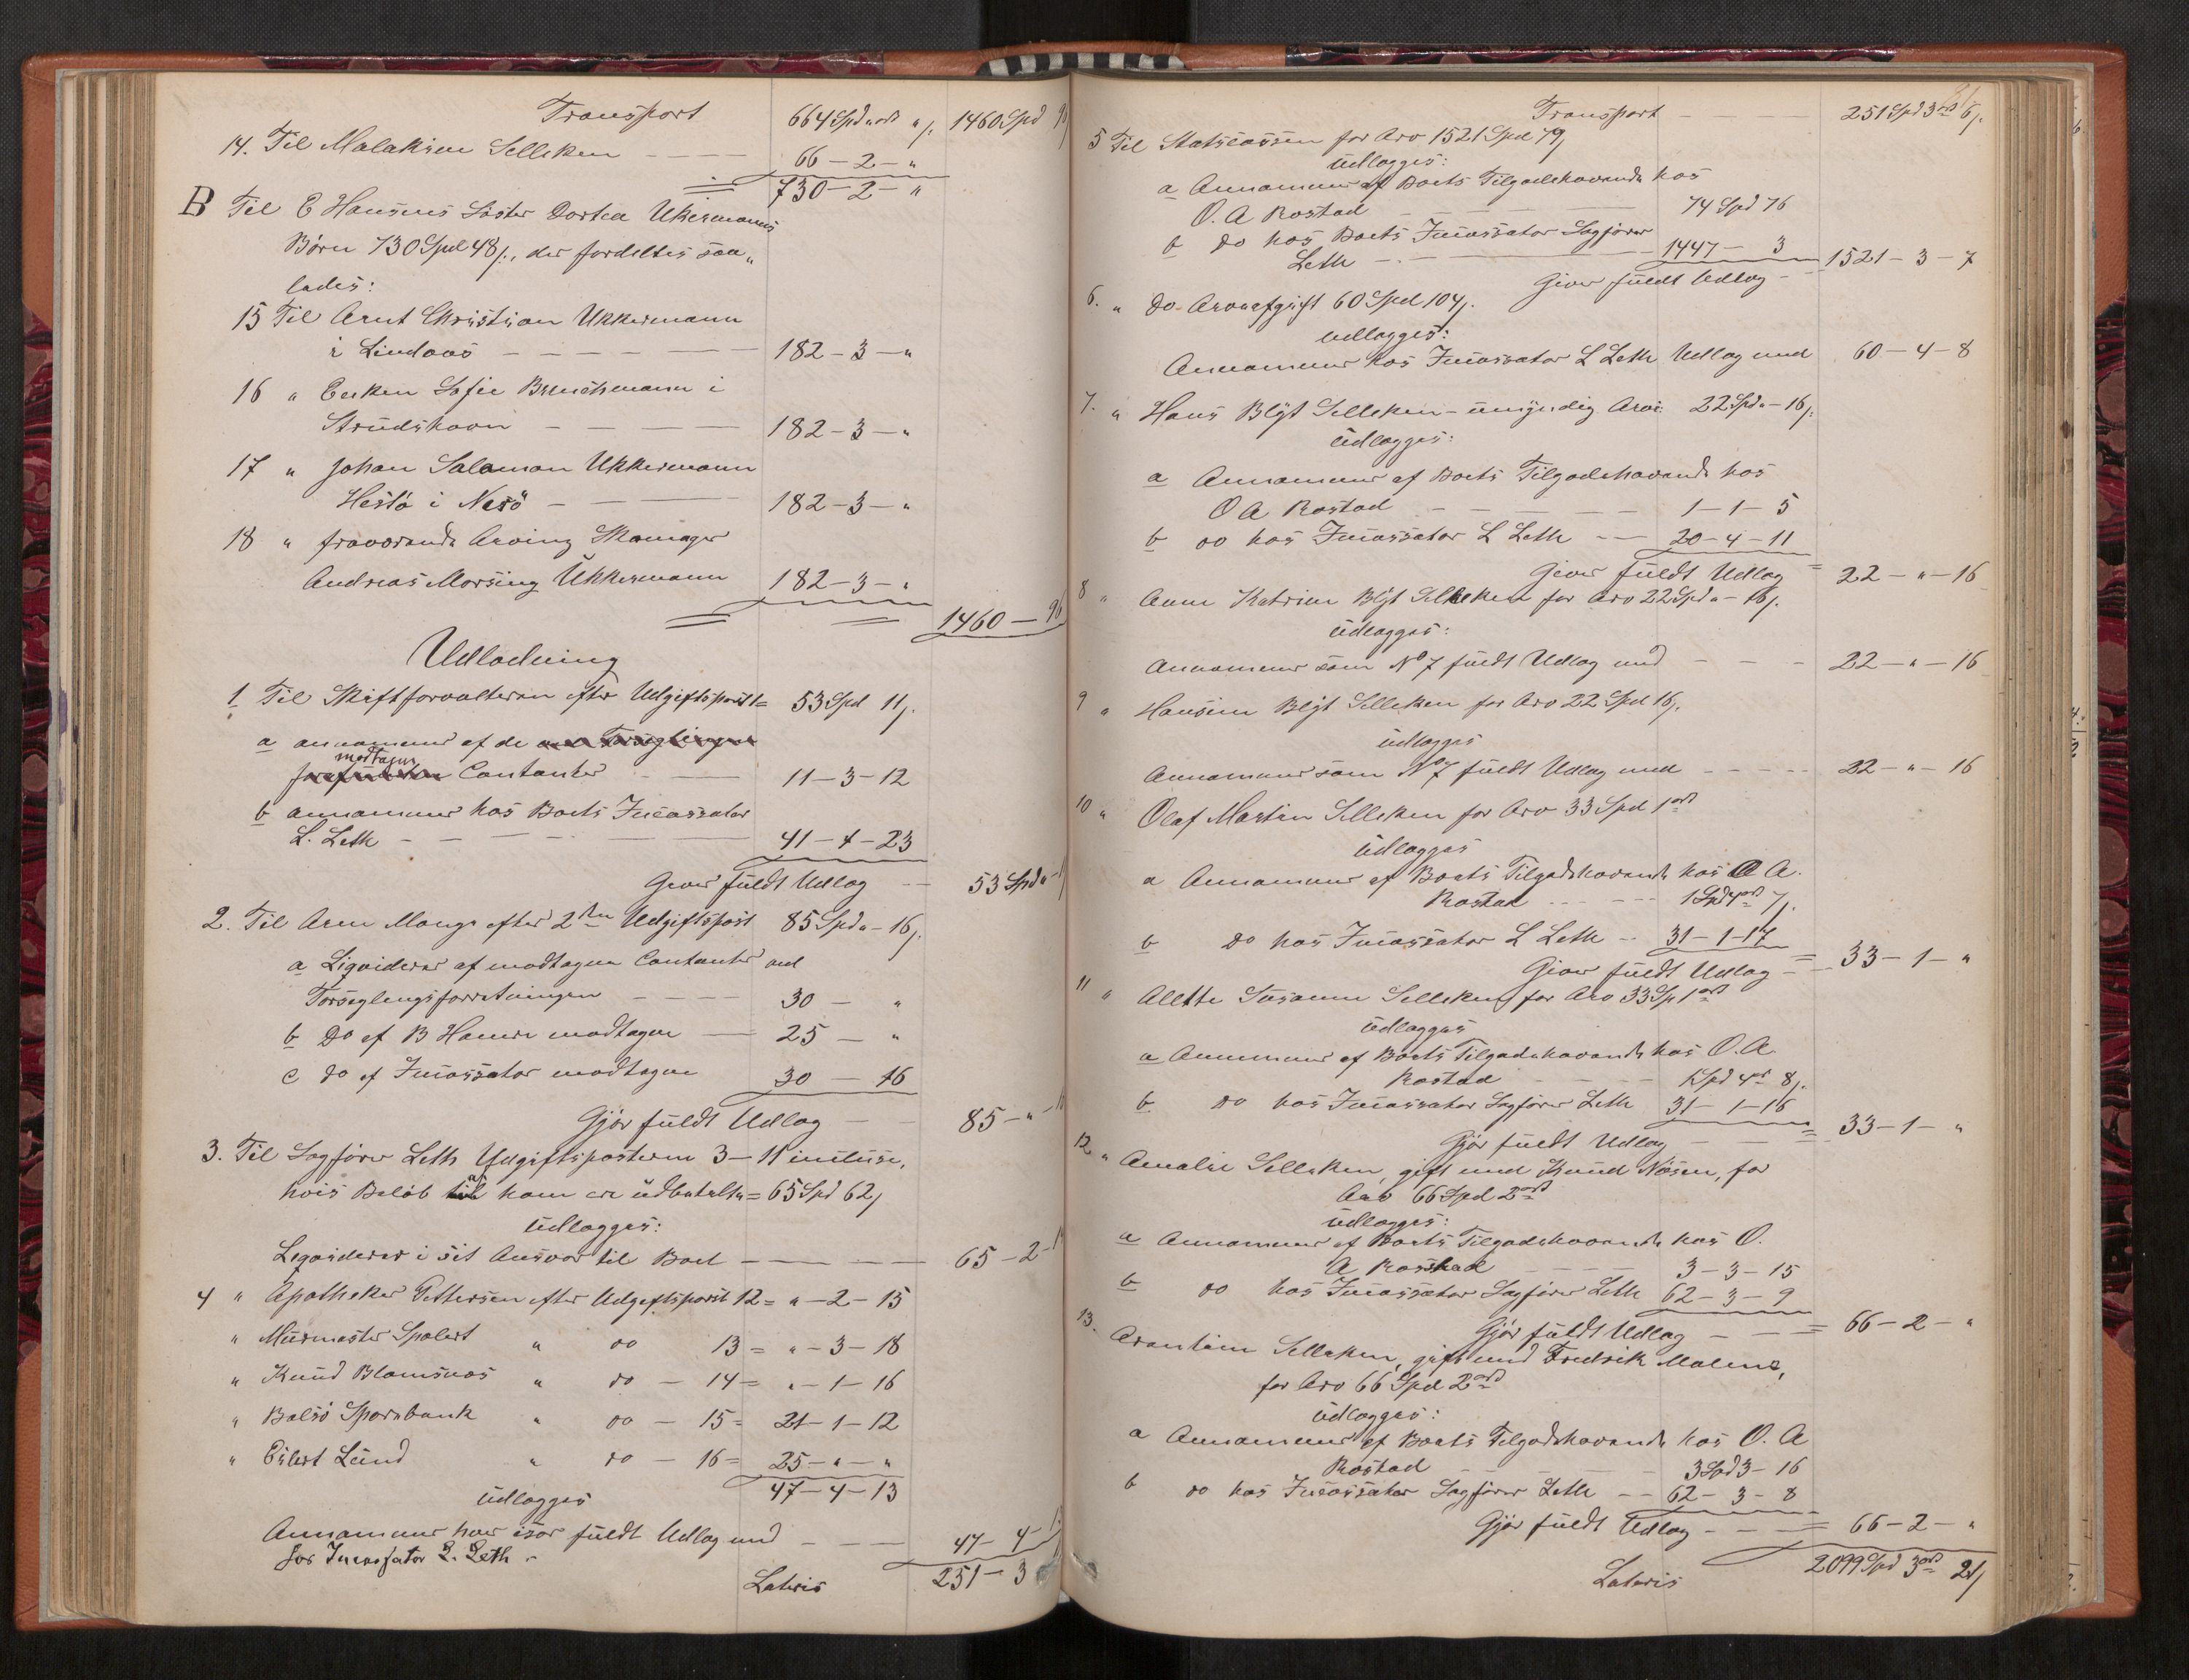 Transport 664 Spd " ort " /. 1460 Spd 96
14. Til Malakine Selleken — 66 – 2 – "
730 – 2 – "
B Til E Hansens Søster Dortea Ukermanns
Børn 730 Spd 48 /., der fordeltes saa„
ledes:
15 Til Arnt Christian Ukkermann
i Lindaas — 182 – 3 – "
16 " Eeken Sofie Bruchmann i
Strudshavn — 182 – 3 – "
17 " Johan Salamon Ukkermann
Hestø i Nesö — 182 – 3 – "
18 " fraværende Arving Skomager
Andreas Morsing Ukkermann 182 – 3 – "
1460 – 96
Udlodning
1 Til Skifteforvalteren efter Udgiftspost 1 = 53 Spd 11 /.
a annammer af de
modtagne
Contanter — 11 – 3 – 12
b annammer hos Boets Incassator
L. Leth — 41 – 4 – 23
Giver fuldt Udlag — 53 Spd "
2. Til Arne Monge efter 2den Udgiftspost 85 Spd " – 16 /.
a Liqviderer af modtagne Contanter ved
Forseglingsforretningen — 30 – "
b Do af B Hamre modtagne — 25 – "
c do af Incassator modtagne 30 – 16
Gjør fuldt Udlag — 85 – "
3. Til Sagfører Leth Udgiftsposterne 3 – 11 incluse,
hvis Beløb af ham ere udbetalte = 65 Spd 62 /
udlægges:
Leqviderer i sit Ansvar til Boet — 65 – 2
4 " Apotheker Pettersen efter Udgiftspost 12 = " – 2 – 15
" Murmester Spolert " do 13 = " – 3 – 18
" Knud Blomsnes " do – 14 = " – 1 – 16
" Bolsö Sparebank " do – 15 = 21 – 1 – 12
" Eilert Lund " do – 16 = 25 – " – "
47 – 4 – 13
udlægges
Annammer hver især fuldt Udlag med — 47 – 4 – 1
hos Incassator L. Leth
Lateris 251 – 3
Transport — 251 Spd 3 ort 6 /.
5 Til Statscassen for Arv 1521 Spd 79 /
udlægges:
a Annammer af Boets Tilgodehavende hos
O. A Rostad — 74 Spd 76
b do hos Boets Incassator Sagfører
Leth — 1447 – 3
Giver fuldt Udlag – 1521 – 3 – 7
6. " Do Arveafgift 60 Spd 104 /.
udlægges:
Annammer hos Incassator L Leth Udlag med 60 – 4 – 8
7. " Hans Blyt Selleken – umyndig Arv: 22 Spd " – 16 /.
udlægges:
a Annammer af Boets Tilgodehavende hos
O A Rostad — 1 – 1 – 5
b do hos Incassator L Leth — 20 – 4 – 11
Giver fuldt Udlag = 22 – " – 16
8 " Anne Katrine Blyt Selleken for Arv 22 Spd " – 16 /.
udlægges:
Annammer som No 7 fuldt Udlag med — 22 – " – 16
9 " Hansine Blyt Selleken for Arv 22 Spd 16 /.
udlægges
Annammer som No 7 fuldt Udlag med — 22 – " – 16
10 " Olaf Martin Selleken for Arv 33 Spd 1 ort
udlægges
a Annammer af Boets Tilgodehavende hos O A.
Rostad — 1 Spd 4 ort 7 /.
b do hos Incassator L Leth – 31 – 1 – 17
Giver fuldt Udlag = 33 – 1 – "
11 " Alette Susanne Selleken for Arv 33 Sp 1 ort
udlægges
a Annammer af Boets Tilgodehavende hos O. A.
Rostad — 1 Spd 4 ort 8 /.
b do hos Incassator Sagfører Leth 31 – 1 – 16
Gjør fuldt Udlag — = 33 – 1 – "
12. " Amalie Selleken, gift med Knud Näsen, for
Arv 66 Spd 2 ort
udlægges:
a Annammer af Boets Tilgodehavende hos O.
A Rostad — 3 – 3 – 15
b do hos Incassator Sagfører Leth 62 – 3 – 9
Gjør fuldt Udlag — = 66 – 2 – "
13. Arentine Selleken, gift med Fredrik Malene,
for Arv 66 Spd 2 ort
udlægges:
a Annammer af Boets Tilgodehavende hos O. A
Rostad — 3 Spd 3 – 16
b do hos Incassator Sagfører Leth — 62 – 3 – 8
Gjør fuldt Udlag — = 66 – 2 – "
Lateris 2099 Spd 3 ort 21 /